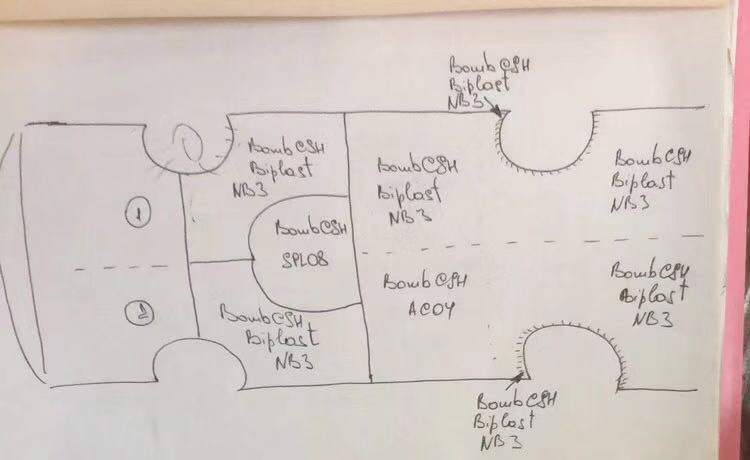 BombCSH
Biplast
NB3
BombCSH
Biplast
NB3
BombCSH
Biplast
NB3
BombCSH
Biplast
NB3
1
BombCSH
SPL08
BombCSH
ACO4
BombCSH
Biplast
NB3
2
BombCSH
Biplast
NB3
BombCSH
Biplast
NB3